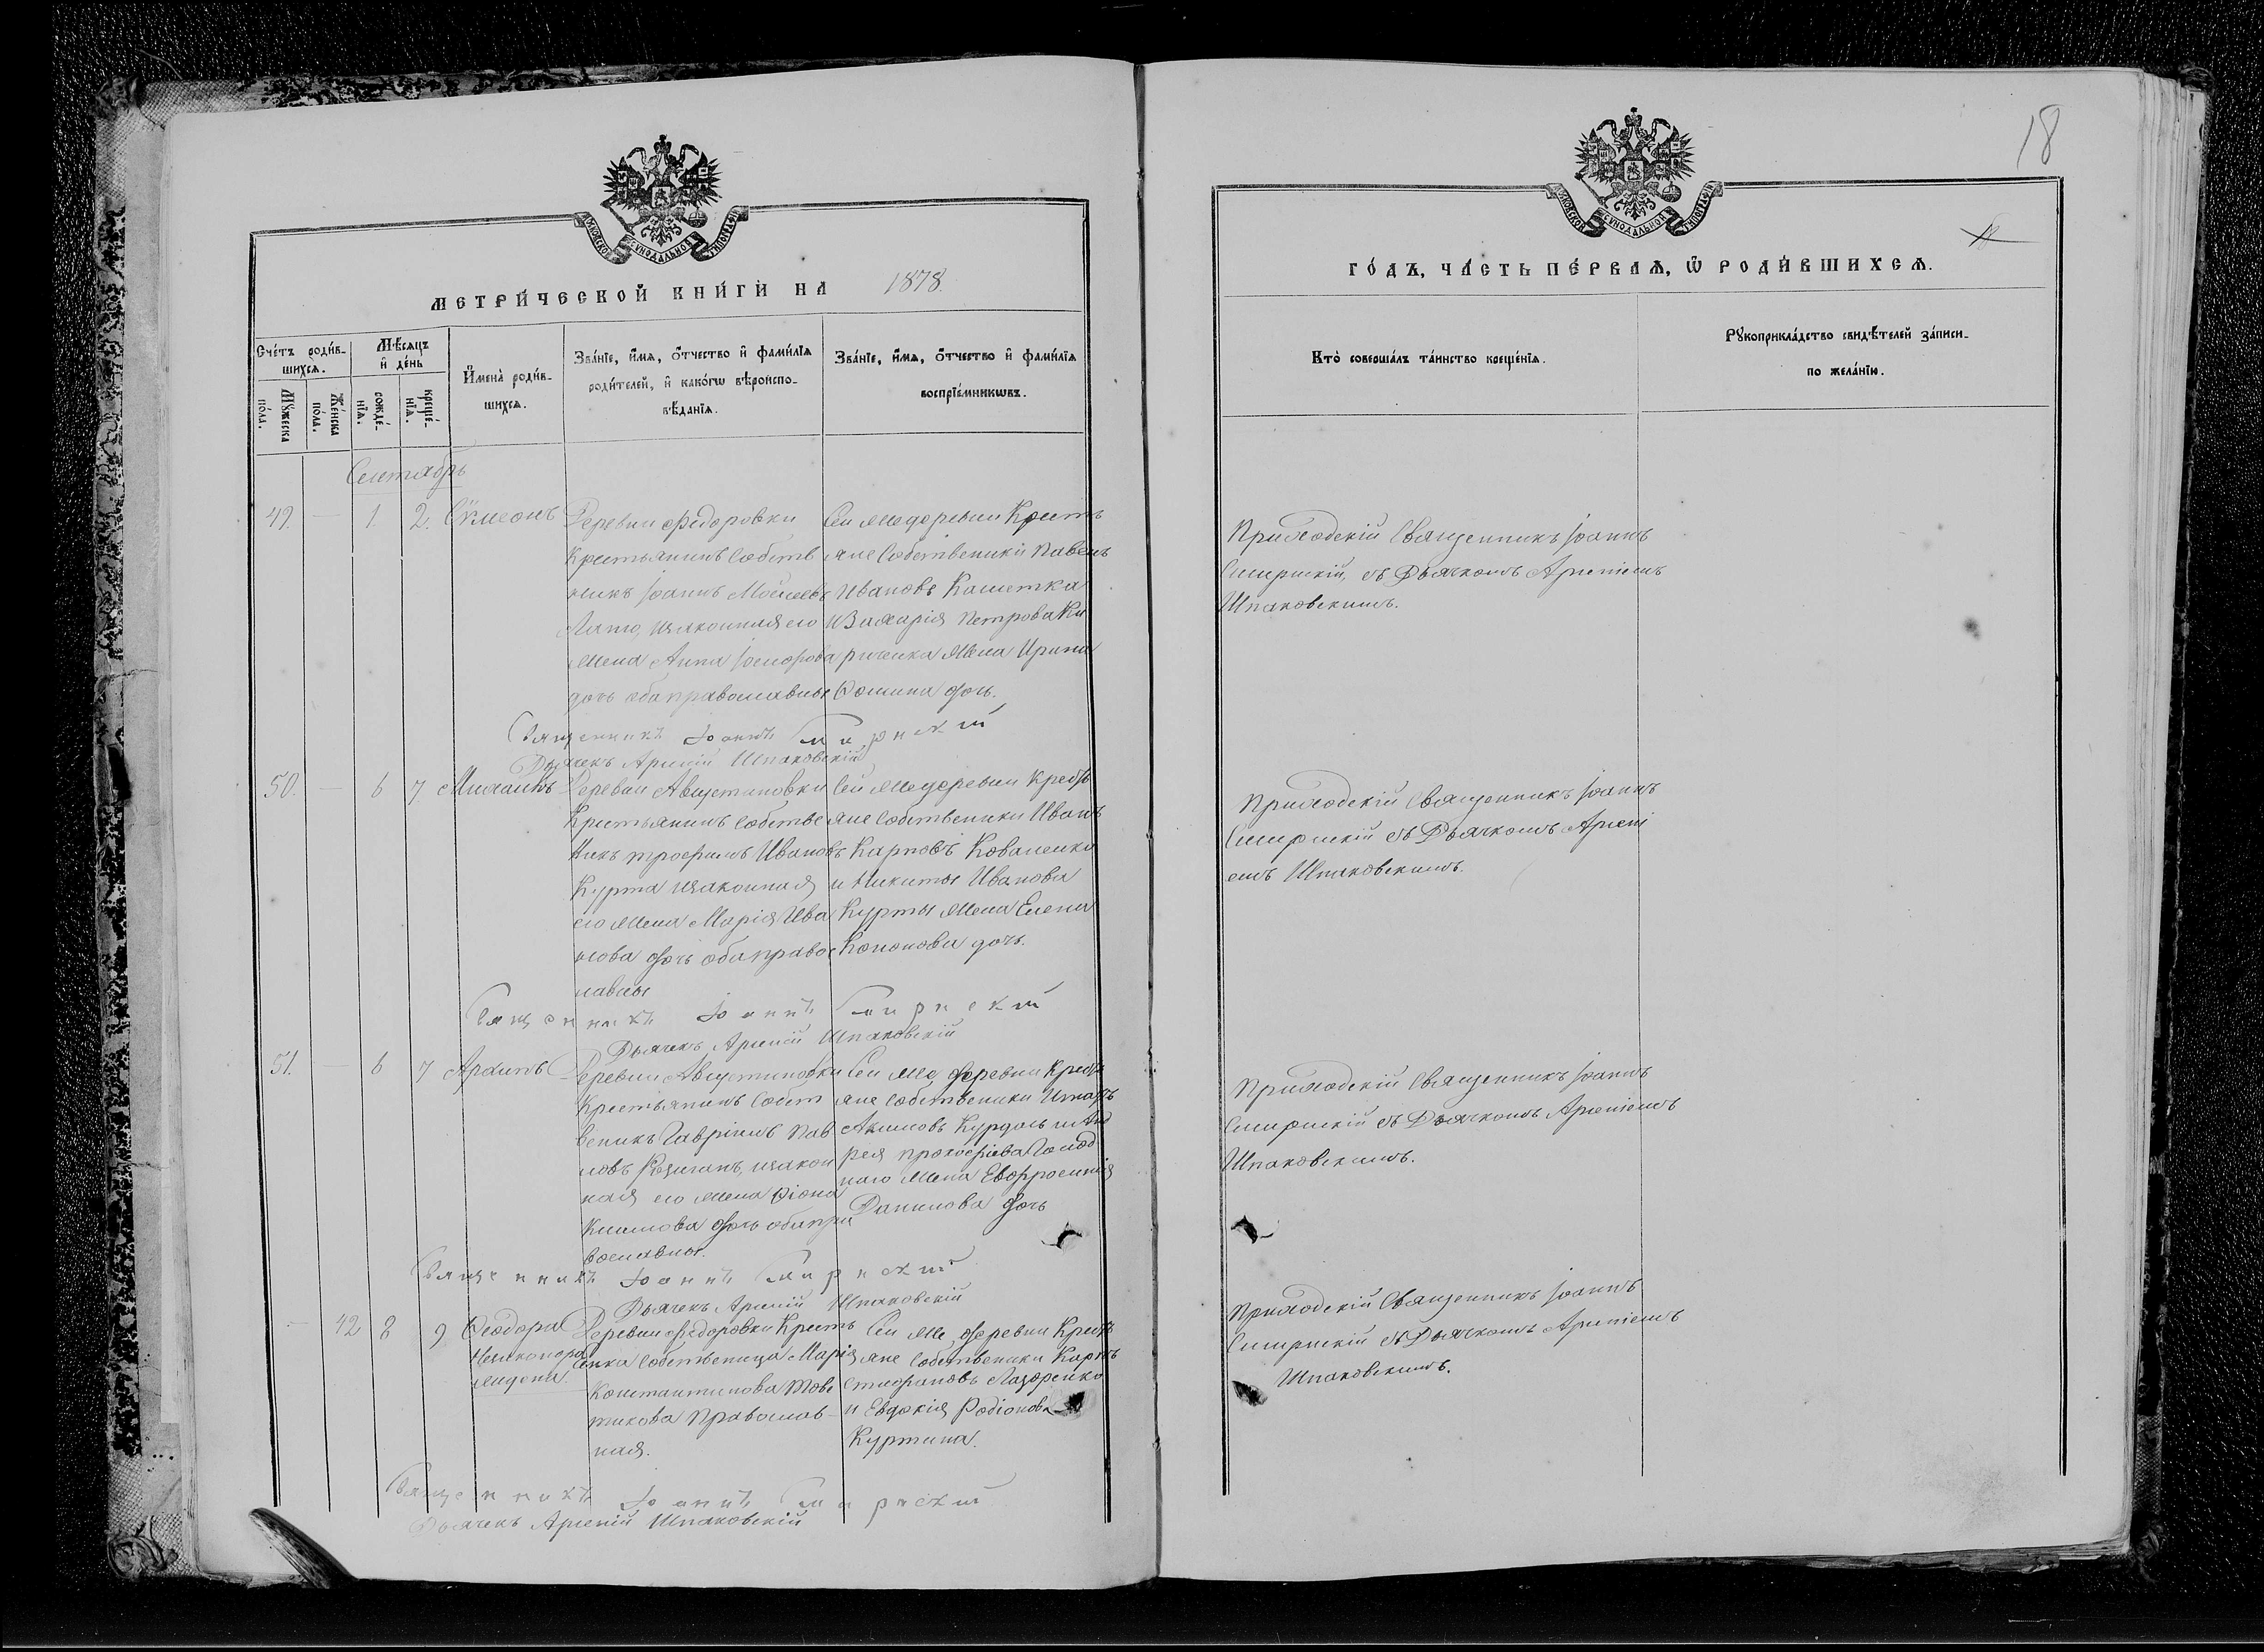 18
МОСКОВСКОЙ СѴНОДАЛЬНОЙ ТИПОГРАФІИ
МОСКОВСКОЙ СѴНОДАЛЬНОЙ ТИПОГРАФІИ
МЕТРИ́ЧЕСКОЙ КНИ́ГИ НА 1878.
ГО́ДЪ, ЧА́СТЬ ПЕ́РВАѦ, Ѡ҆ РОДИ́ВШИХСѦ.
Сче́тъ роди́в-
шихсѧ.
Мѣ́сѧцъ
и҆ де́нь
Мꙋ́жеска по́ла.
Же́нска по́ла.
рожде́-
нїѧ.
креще́-
нїѧ.
И҆мена̀ роди́в-
шихсѧ.
Зва́нїе, и҆́мѧ, ѻ҆́тчество и҆ фами́лїѧ
роди́телей, и҆ како́гѡ вѣроиспо-
вѣ́данїѧ.
Зва́нїе, и҆́мѧ, ѻ҆́тчество и҆ фами́лїѧ
воспрїе́мникѡвъ.
Кто̀ соверша́лъ та́инство креще́нїѧ.
Рꙋкоприкла́дство свидѣ́телей за́писи
по жела́нїю.
Сентябрь
49. — 1. 2. Сѵмеонъ
Деревни Федоровки
Крестьянинъ Собств
никъ Іоаннъ Моисеевъ
законная его
жена Анна
дочь оба православны
Сей же деревни Крест
яне Собственики Павелъ
Ивановъ
и Захарія Петрова Ки
риченка жена Ирина
Фомина дочь.
Приходскій Священникъ Іоаннъ
Смирнскій, съ Дьячкомъ Арсеніемъ
Шпаковскимъ.
Священникъ Іоаннъ Смирнскій
Дьячекъ Арсеній Шпаковскій
50. — 6 7 Михаилъ
Деревни Августиновки
Крестьянинъ Собстве
никъ Трофимъ Ивановъ
Курта законная
его жена Марія Ива
нова дочь оба правос
лавны
Сей же деревни Кресть
яне Собственики Иванъ
Карповъ Коваленко
и Никиты Иванова
Курты жена Елена
Кононова дочь.
Приходскій Священникъ Іоаннъ
Смирнскій съ Дьячкомъ Арсені
емъ Шпаковскимъ.
Священникъ Іоаннъ Смирнскій
Дьячекъ Арсеній Шпаковскій
51. — 6 7 Архипъ
Деревни Августиновки
Крестьянинъ Собст
веникъ Гавріилъ Пав
ловъ закон
ная его жена
Климова дочь оба пра
вославны.
Сей же деревни Кресть
яне Собственики
Акимовъ и Анд
рея Прокофіева Голод
наго жена Евфросинія
Данилова дочь
Приходскій Священникъ Іоаннъ
Смирнскій съ Дьячкомъ Арсеніемъ
Шпаковскимъ.
Священникъ Іоаннъ Смирнскій
Дьячекъ Арсеній Шпаковскій
— 42 8 9 Феодора
Незаконоро
ждена
Деревни Федоровки Кресть
янка Собственица Марія
Константинова Тове
тикова Православ
ная.
Сей же деревни Кресть
яне Собственики Карпъ
Стефановъ Лазоренко
и Евдокія Родіонова
Куртина.
Приходскій Священникъ Іоаннъ
Смирнскій съ Дьячкомъ Арсеніемъ
Шпаковскимъ.
Священникъ Іоаннъ Смирнскій
Дьячекъ Арсеній Шпаковскій